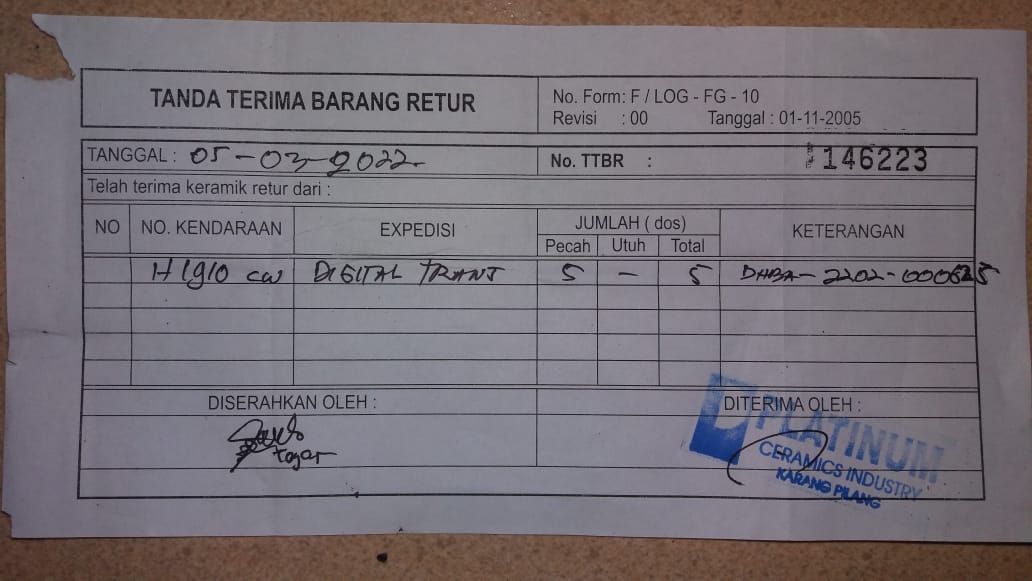 TANDA TERIMA BARANG RETUR
No. Form: F / LOG - FG - 10
Revisi : 00 Tanggal : 01-11-2005
TANGGAL : 05-03-2022-
No. TTBR : 146223
Telah terima keramik retur dari :
NO NO. KENDARAAN EXPEDISI JUMLAH ( dos) KETERANGAN
Pecah Utuh Total
H 1910 CW DIGITAL TRANS 5 - 5 DHBA-2202-000625
DISERAHKAN OLEH : DITERIMA OLEH :
PLATINUM
CERAMICS INDUSTRY
KARANG PILANG